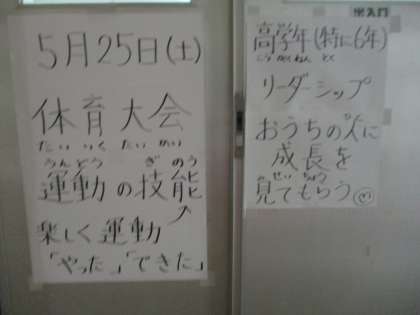 5月25日(土)
体育大会
たいいくたいかい
うんどう ぎのう
運動の技能
楽しく運動
「やった」「できた」
出入口
高学年(特に6年)
こうがくねん とく
リーダーシップ
おうちの人に
成長を
せいちょう
見てもらう